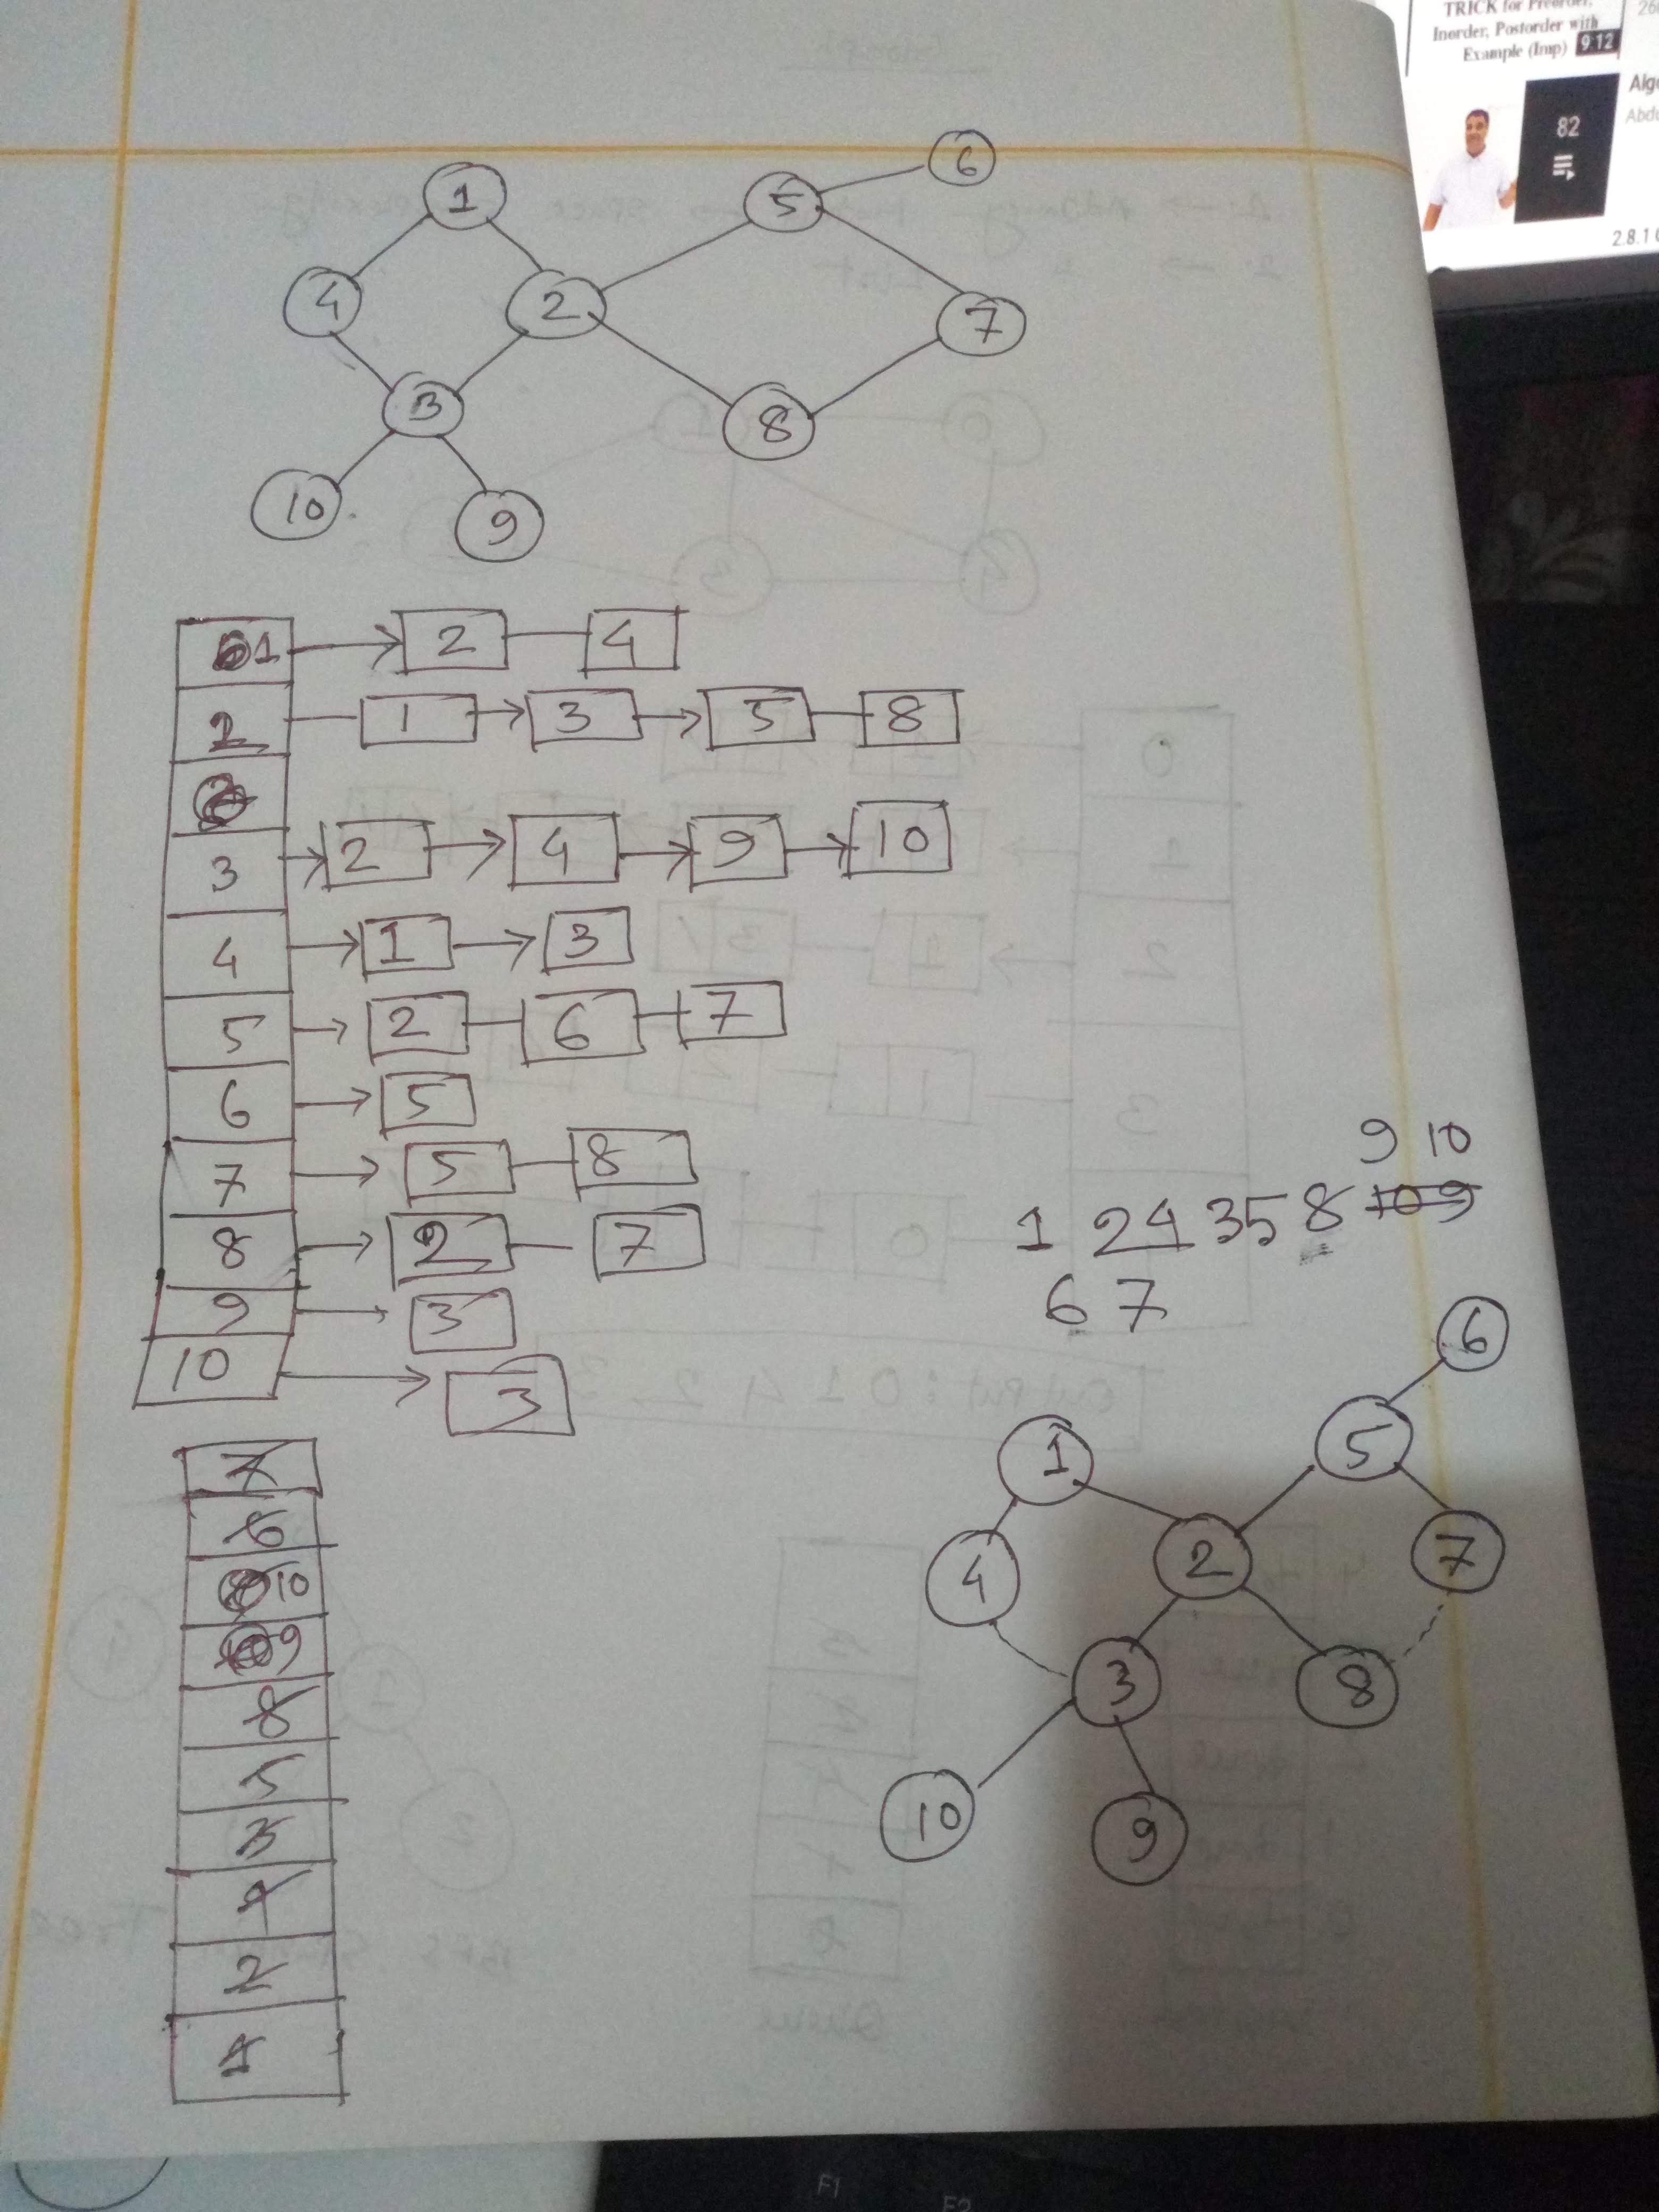 TRICK for Preorder,
Inorder, Postorder with
Example (Imp) 9:12
26
Algo
Abdu
82
2.8.1
6
1
5
4
2
7
3
8
10
9
1 2 4
2 1 3 5 8
3 2 4 9 10
4 1 3
5 2 6 7
6 5
7 5 8
8 2 7
9 3
10 3
9 10
1 2 4 3 5 8 10 9
6 7
7
6
10
9
8
5
3
4
2
1
6
1
5
4
2
7
3
8
10
9
F1
F2